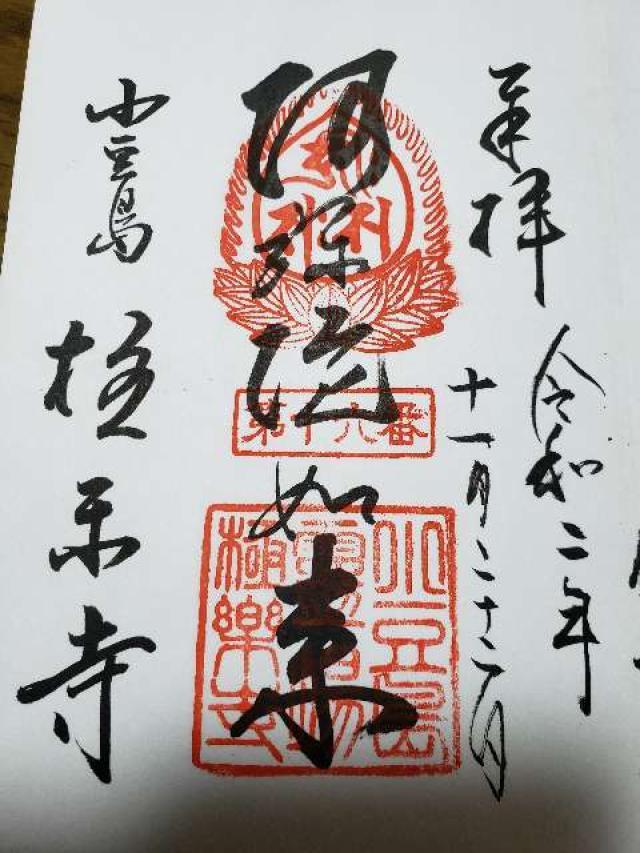 奉拝
令和二年
十一月二十二日
阿弥陀如来
第十六番
小豆島
霊場
極楽寺
小豆島
極楽寺